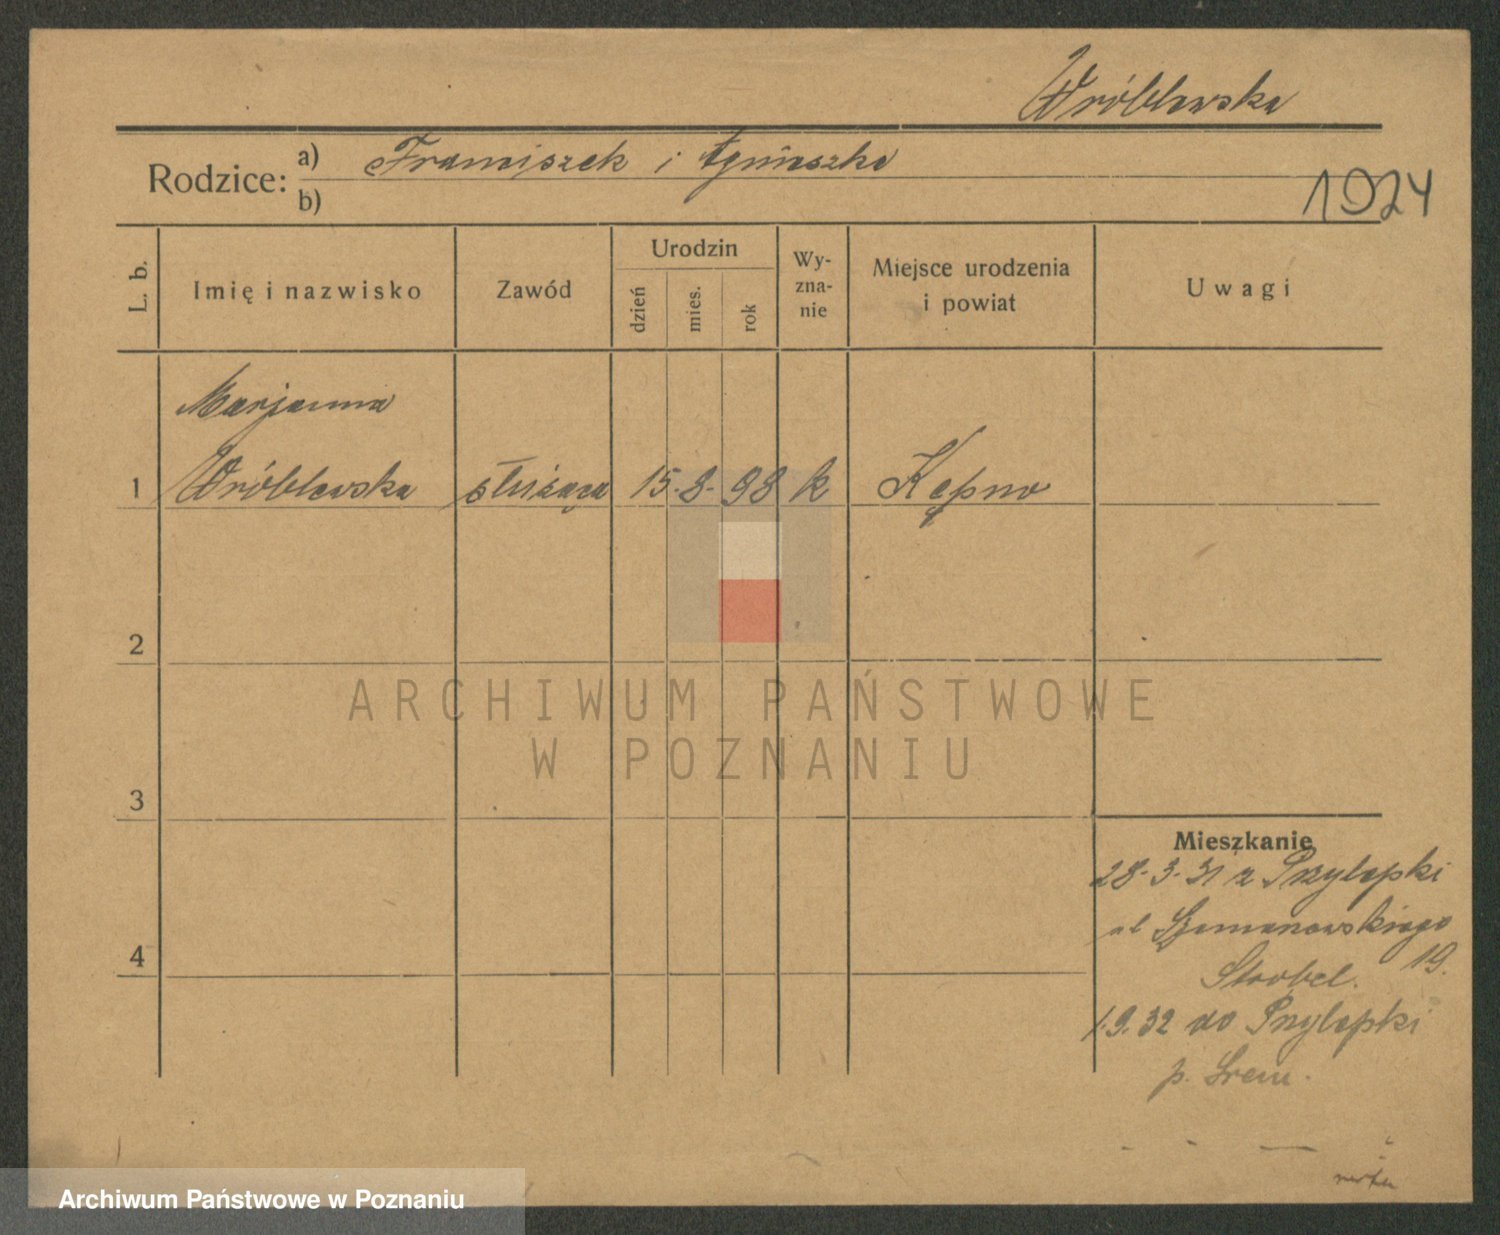 Wróblewska
Rodzice: a) Franciszek i Agnieszka
b)
1924
L. b.
Imię i nazwisko
Zawód
Urodzin
dzień
mies.
rok
Wy-
zna-
nie
Miejsce urodzenia
i powiat
Uwagi
Marjanna
1 Wróblewska służąca 15. 8. 98 k Kępno
2
ARCHIWUM PAŃSTWOWE
W POZNANIU
3
Mieszkanie
28. 3. 31 z Przylepki
ul Szamanowskiego
19.
4
Strobel.
1.9.32 do Przylepki
p. Śrem.
Archiwum Państwowe w Poznaniu